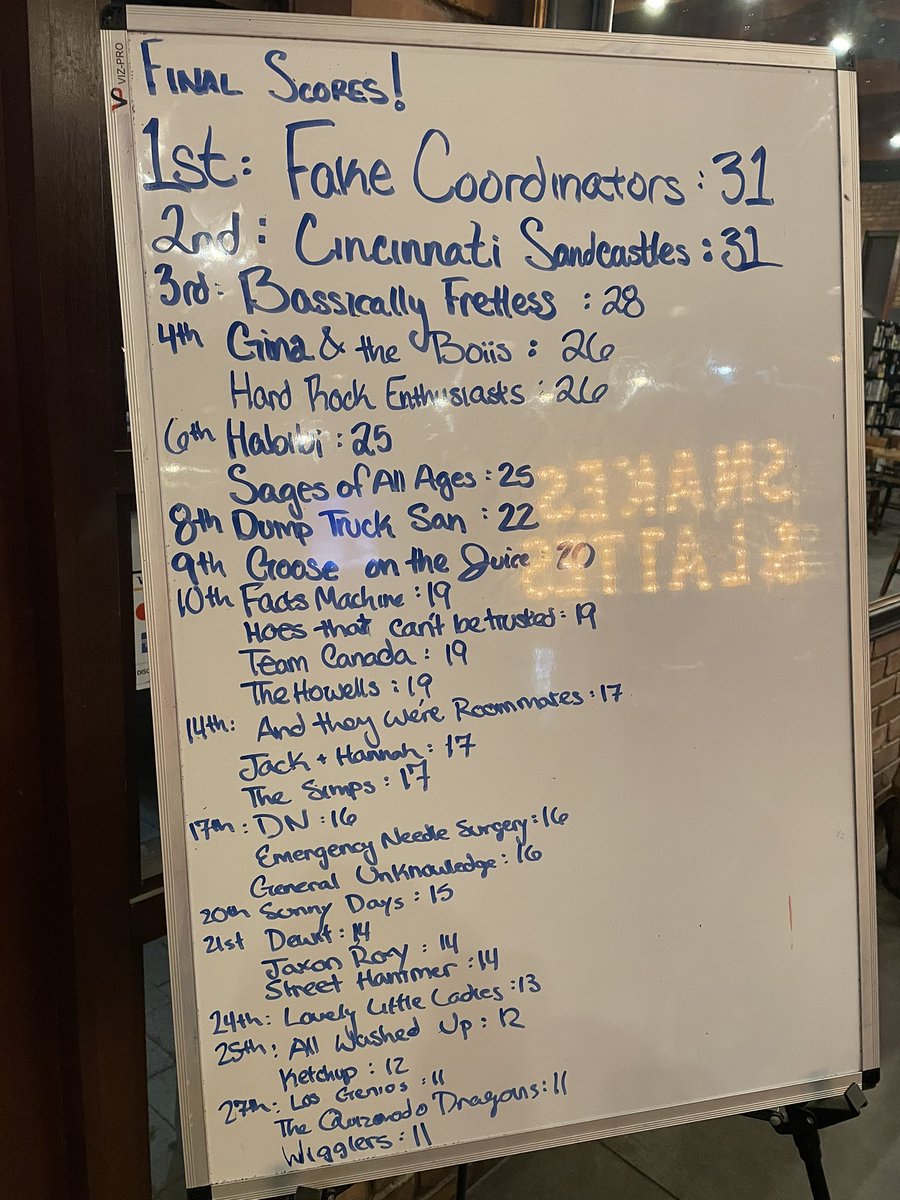 VIZ-PRO
FINAL SCORES!
1st: Fake Coordinators: 31
2nd: Cincinnati Sandcastles: 31
3rd: Bassically Fretless: 28
4th Gina & the Boiis: 26
Hard Rock Enthusiasts: 26
6th Habibi: 25
Sages of All Ages: 25
8th Dump Truck San: 22
9th Goose on the Juice: 20
10th Facts Machine: 19
Hoes that can't be trusted: 19
Team Canada: 19
The Howells: 19
14th: And they we're Roommates: 17
Jack + Hannah: 17
The Simps: 17
17th: DN: 16
Emergency Needle Surgery: 16
General Unknowledge: 16
20th Sunny Days: 15
21st Dewit: 14
Jaxon Roxy: 14
Street Hammer: 14
24th: Lovely Little Ladies: 13
25th: All Washed Up: 12
Ketchup: 12
27th: Los Genios: 11
The Quizonado Dragons: 11
Wigglers: 11
SNAKES
& LATTES